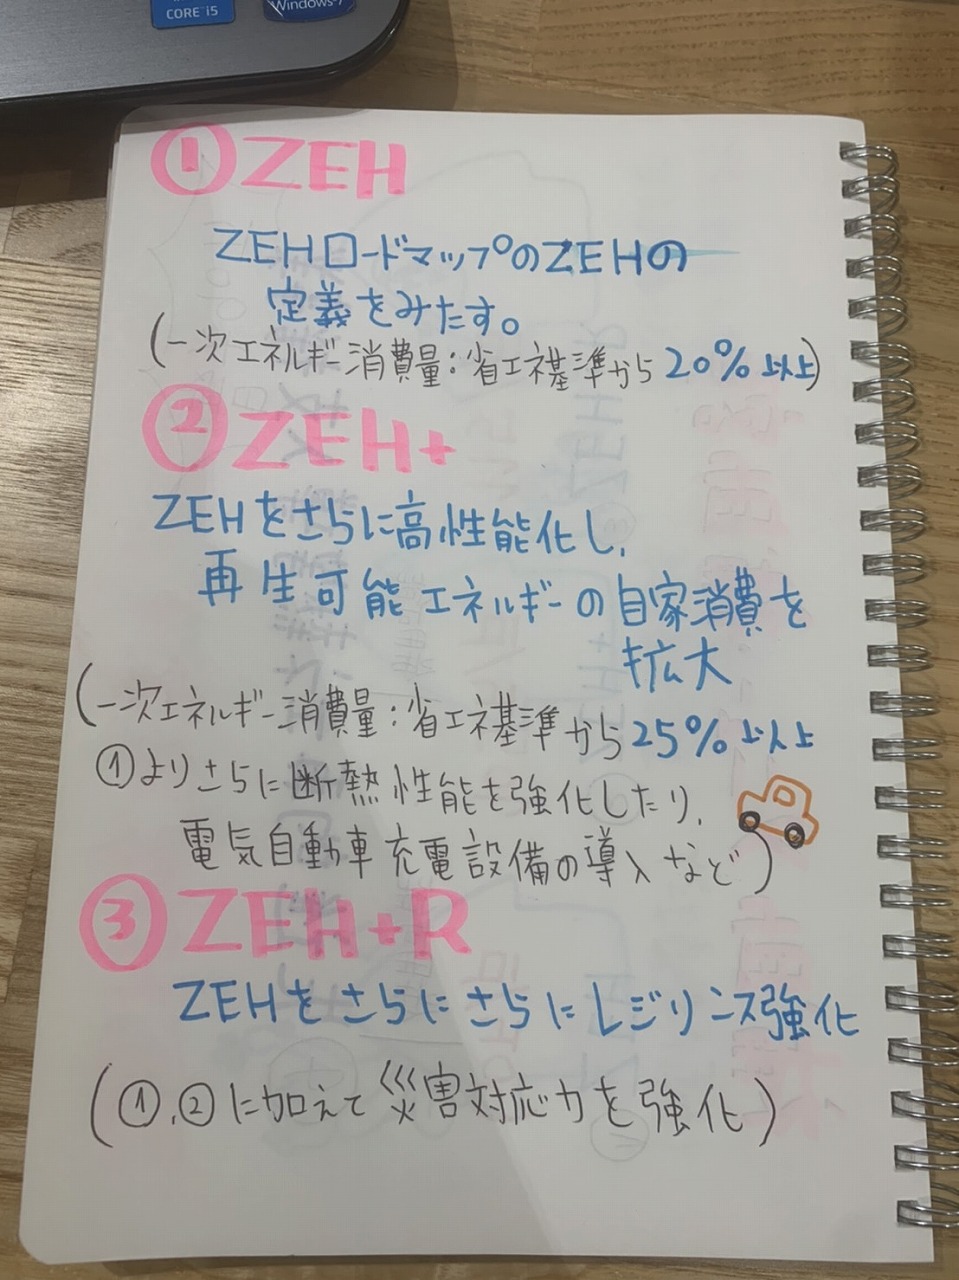 CORE i5
Windows 7
①ZEH
ZEHロードマップのZEHの
定義をみたす。
(一次エネルギー消費量:省エネ基準から20%以上)
②ZEH+
ZEHをさらに高性能化し、
再生可能エネルギーの自家消費を
拡大
(一次エネルギー消費量:省エネ基準から25%以上
①よりさらに断熱性能を強化したり、
電気自動車充電設備の導入など)
③ZEH+R
ZEHをさらにさらにレジリンス強化
(①、②に加えて災害対応力を強化)